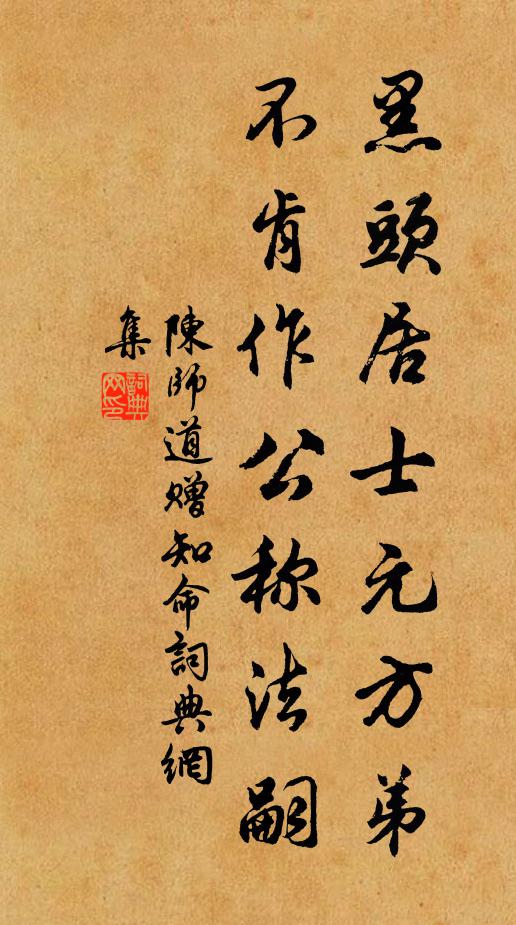 黑頭居士元方弟
不肯作公称法嗣
陳師道贈知命詞典網
集
詞典网印